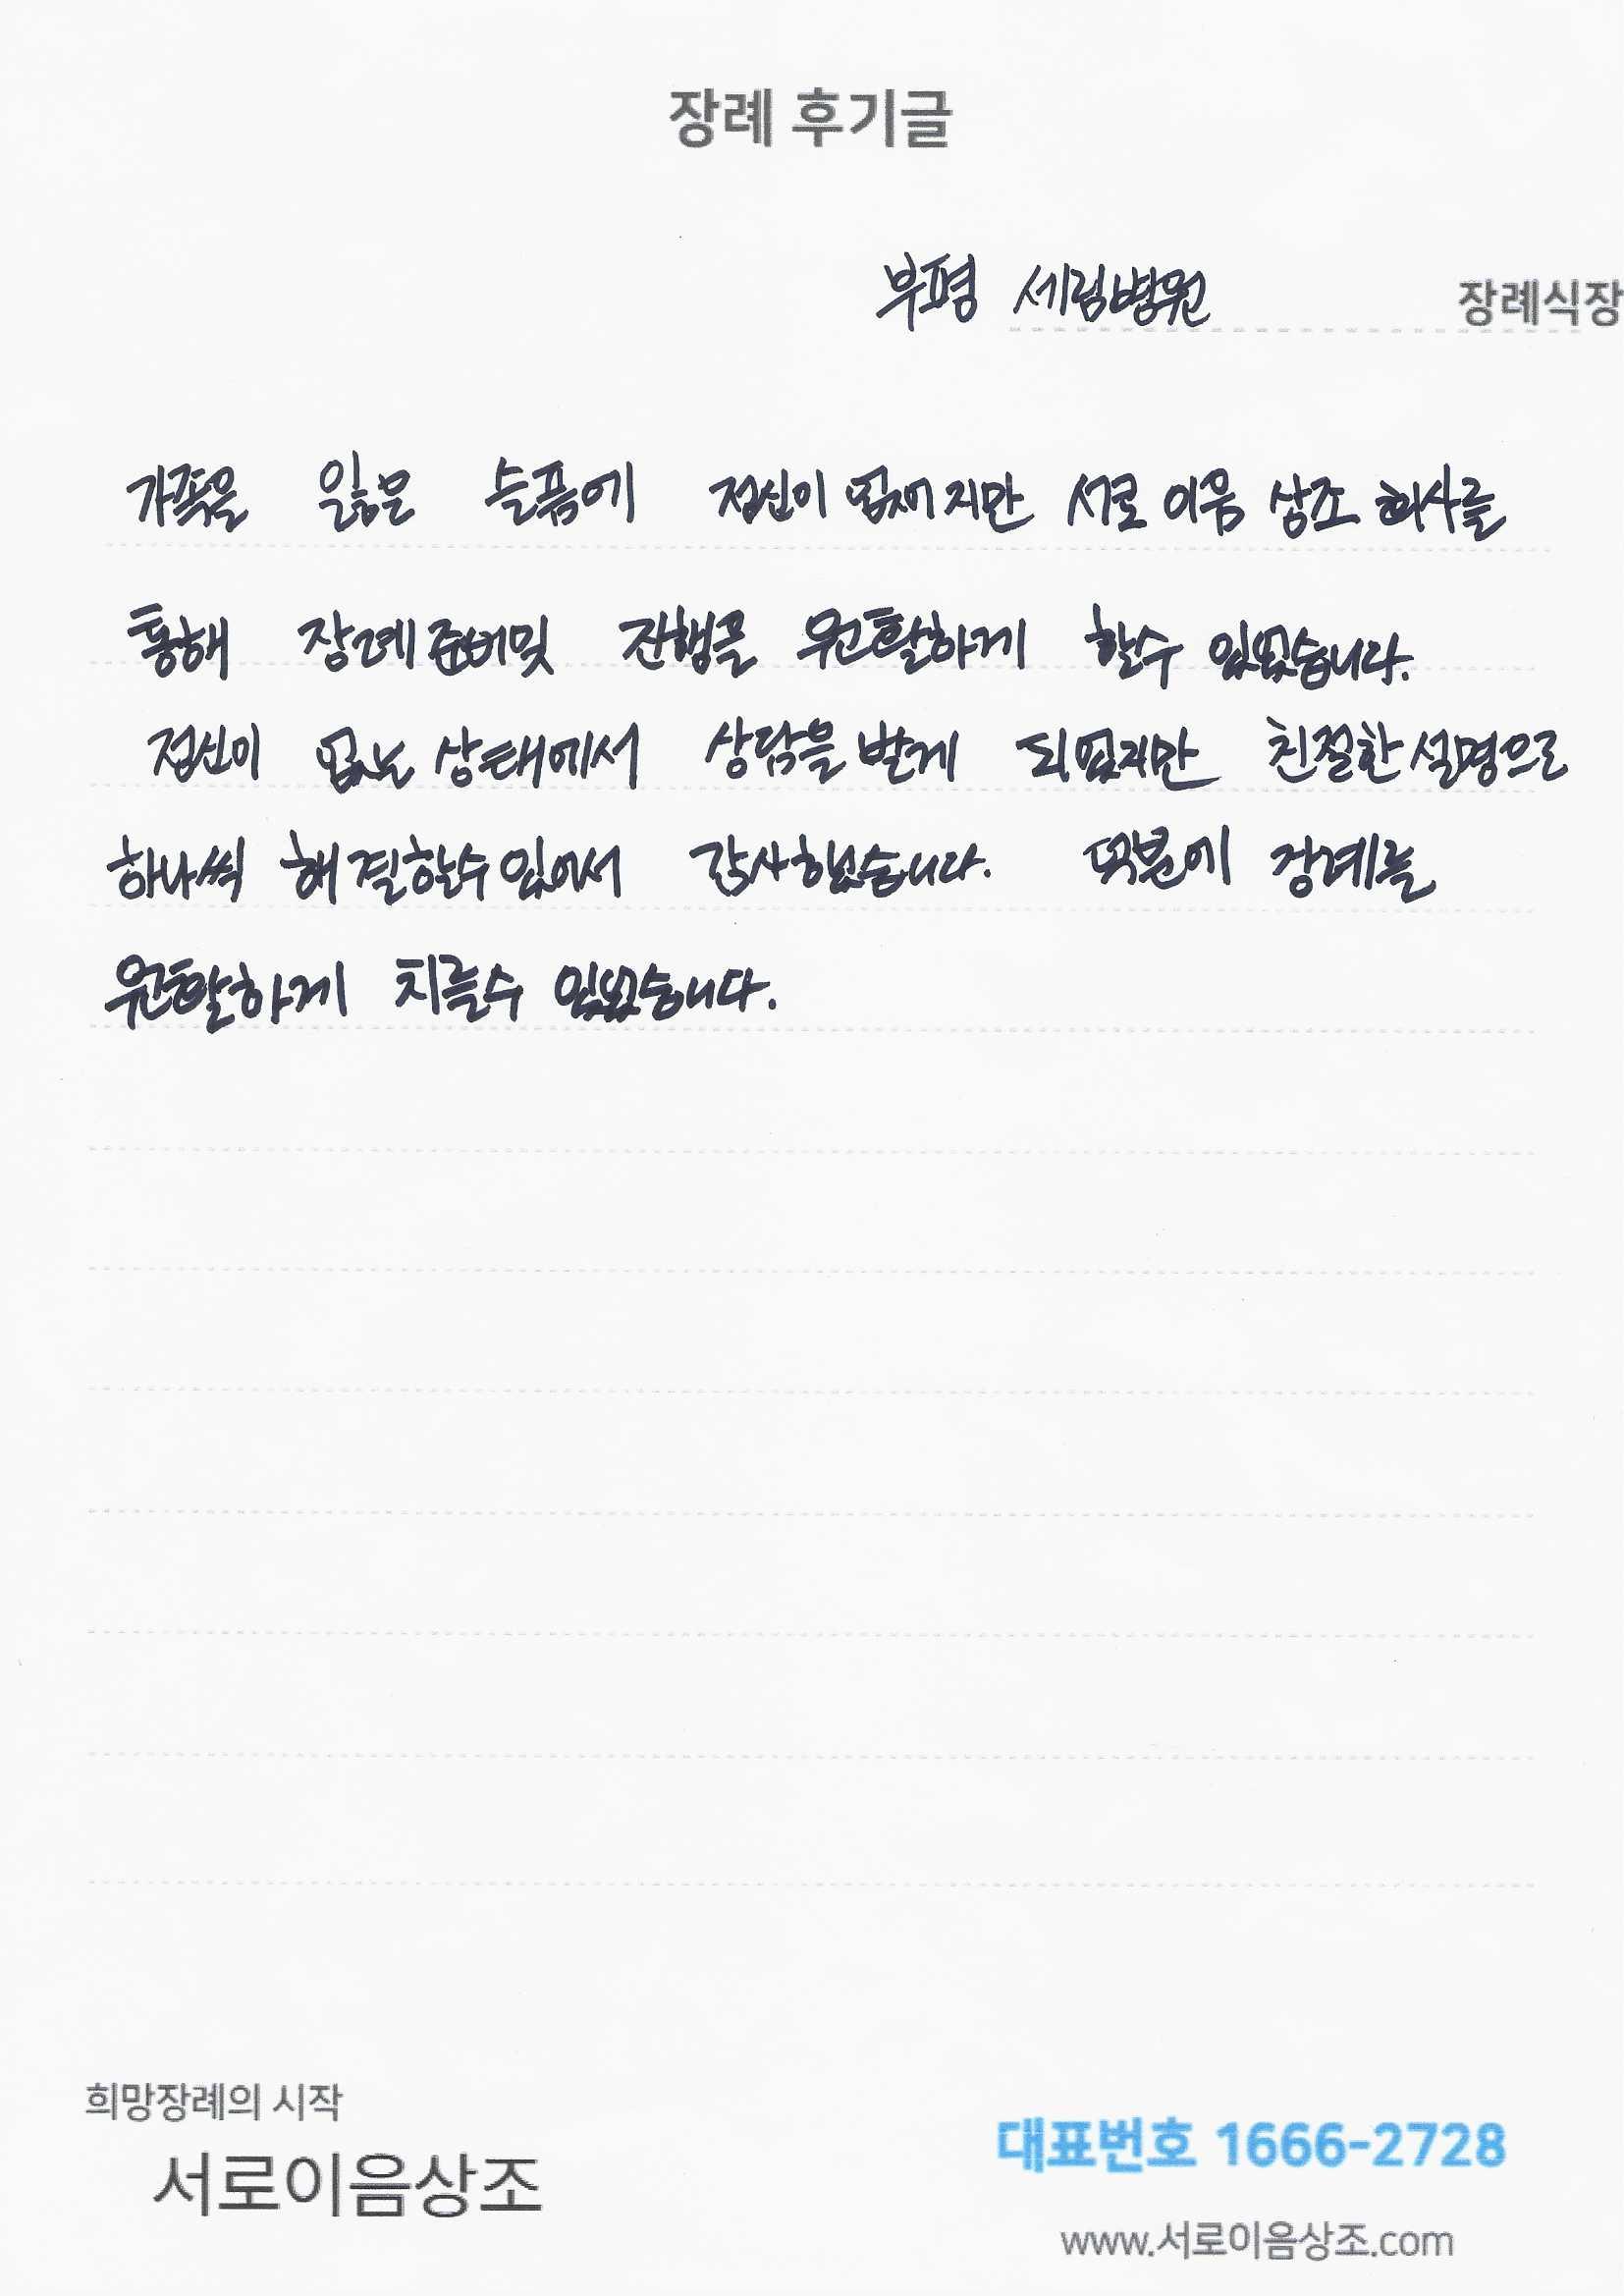 장례 후기글
부평 세림병원 장례식장
가족을 잃은 슬픔에 정신이 없었지만 서로 이음 상조 회사를
통해 장례준비및 진행을 원활하게 할수 있었습니다.
정신이 없는 상태에서 상담을 받게 되었지만 친절한 설명으로
하나씩 해결할수 있어서 감사했습니다. 덕분에 장례를
원활하게 치를수 있었습니다.
희망장례의 시작
서로이음상조
대표번호 1666-2728
www.서로이음상조.com